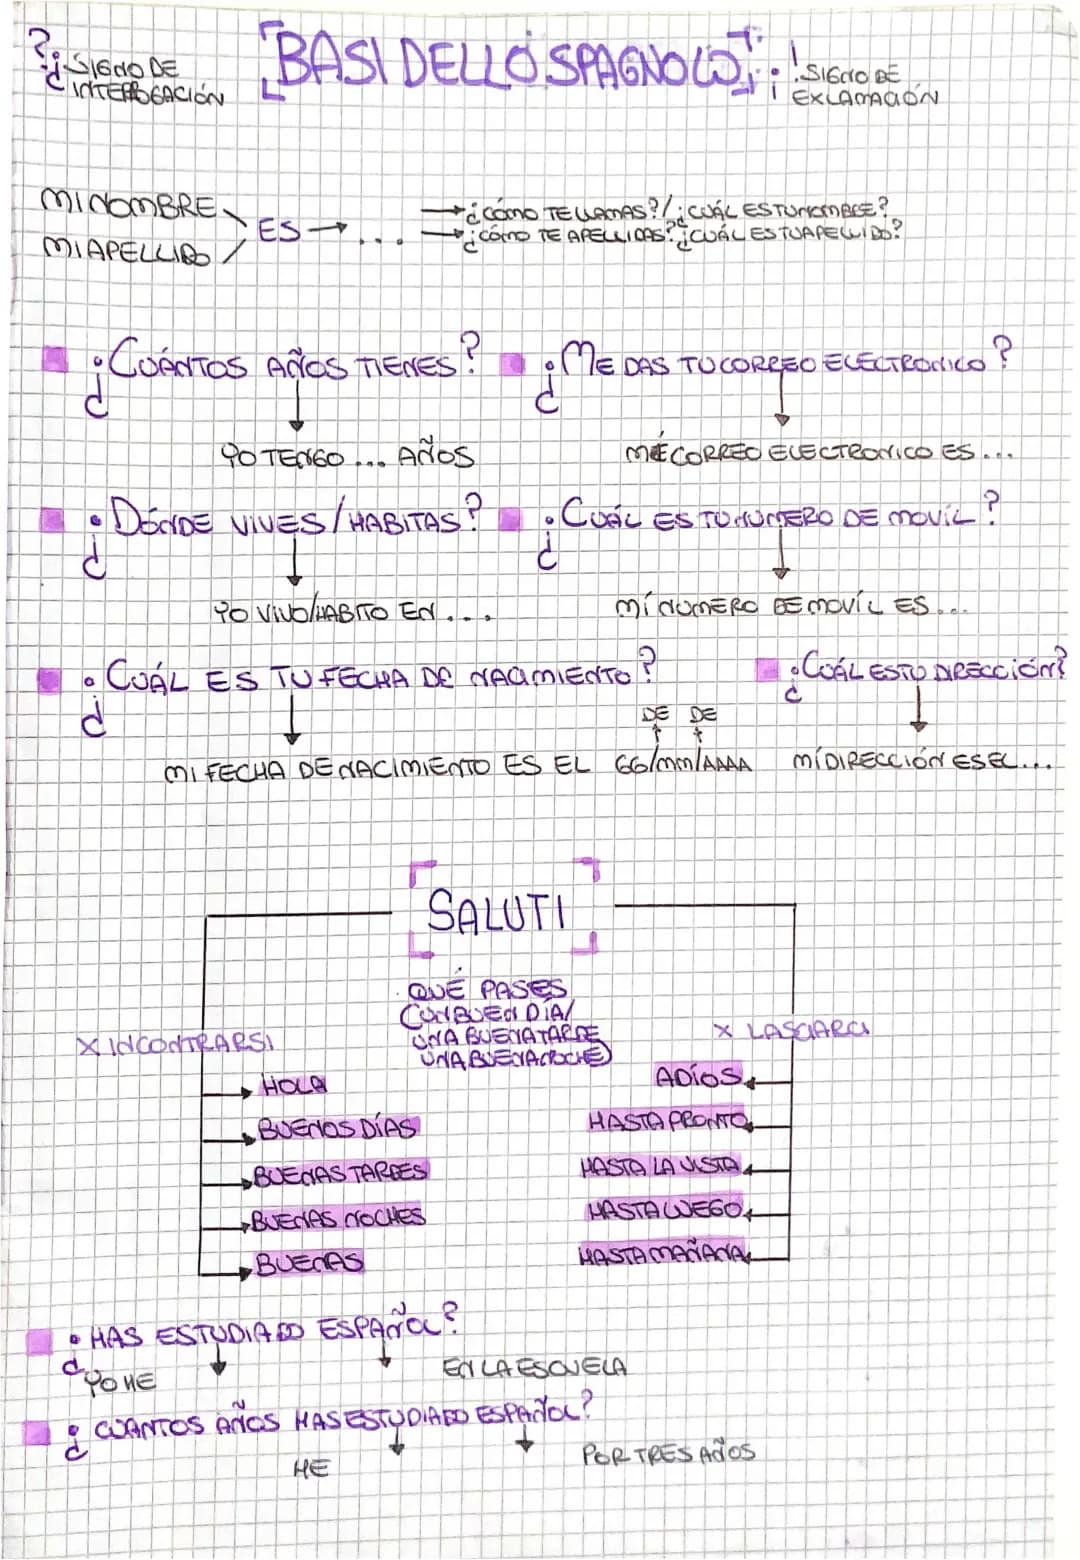 BASI DELLO SPAGNOLO
? ¿ SIGNO DE
INTERROGACIÓN
! ¡ SIGNO DE
EXCLAMACIÓN
MI NOMBRE
MI APELLIDO
ES → ...
→ ¿CÓMO TE LLAMAS?/¿CUÁL ES TU NOMBRE?
→ ¿CÓMO TE APELLIDAS? ¿CUÁL ES TU APELLIDO?
¿CUÁNTOS AÑOS TIENES?
YO TENGO ... AÑOS
¿ME DAS TU CORREO ELECTRONICO?
MÉ CORREO ELECTRONICO ES ...
¿DÓNDE VIVES/HABITAS?
YO VIVO/HABITO EN ...
¿CUÁL ES TU NUMERO DE MOVÍL?
MÍ NUMERO DE MOVÍL ES ...
¿CUÁL ES TU FECHA DE NACIMIENTO?
DE DE
MI FECHA DE NACIMIENTO ES EL GG/MM/AAAA
¿CUÁL ES TU DIRECCIÓN?
MÍ DIRECCIÓN ES EL ...
SALUTI
QUÉ PASES
(UN BUEN DÍA/
UNA BUENA TARDE
UNA BUENA NOCHE)
X INCONTRARSI
HOLA
BUENOS DÍAS
BUENAS TARDES
BUENAS NOCHES
BUENAS
X LASCIARCI
ADÍOS
HASTA PRONTO
HASTA LA VISTA
HASTA LUEGO
HASTA MAÑANA
¿HAS ESTUDIADO ESPAÑOL?
YO HE
EN LA ESCUELA
¿CUANTOS AÑOS HAS ESTUDIADO ESPAÑOL?
HE
POR TRES AÑOS